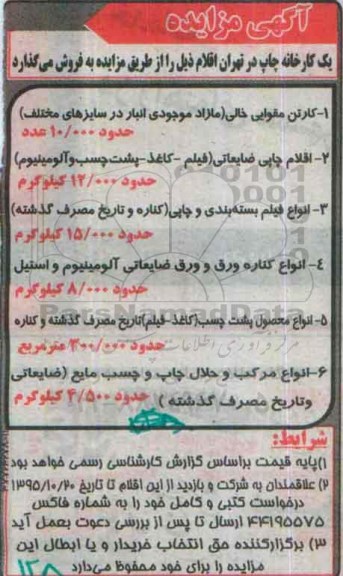 آگهی مزایده
یک کارخانه چاپ در تهران اقلام ذیل را از طریق مزایده به فروش می‌گذارد
۱-کارتن مقوایی خالی(مازاد موجودی انبار در سایزهای مختلف)
حدود ۱۰/۰۰۰ عدد
۲- اقلام چاپی ضایعاتی(فیلم -کاغذ-پشت‌چسب‌وآلومینیوم)
حدود ۱۲/۰۰۰ کیلوگرم
۳- انواع فیلم بسته‌بندی و چاپی(کناره و تاریخ مصرف گذشته)
حدود ۱۵/۰۰۰ کیلوگرم
۴- انواع کناره ورق و ورق ضایعاتی آلومینیوم و استیل
حدود ۸/۰۰۰ کیلوگرم
۵- انواع محصول پشت چسب(کاغذ-فیلم)تاریخ مصرف گذشته و کناره
حدود ۳۰۰/۰۰۰ مترمربع
۶-انواع مرکب و حلال چاپ و چسب مایع (ضایعاتی
وتاریخ مصرف گذشته ) حدود ۴/۵۰۰ کیلوگرم
شرایط:
۱)پایه قیمت براساس گزارش کارشناسی رسمی خواهد بود
۲) علاقمندان به شرکت و بازدید از این اقلام تا تاریخ ۱۳۹۵/۱۰/۲۰
درخواست کتبی و کامل خود را به شماره فاکس
۴۴۱۹۵۵۷۵ ارسال تا پس از بررسی دعوت بعمل آید
۳) برگزارکننده حق انتخاب خریدار و یا ابطال این
مزایده را برای خود محفوظ می‌دارد
۱۲۸